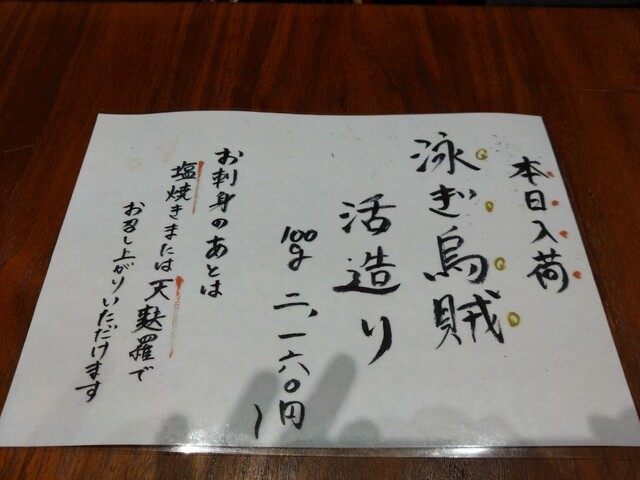 本日入荷
泳ぎ烏賊
活造り
100g 二,一六〇円
お刺身のあとは
塩焼きまたは天麩羅で
お召し上がりいただけます